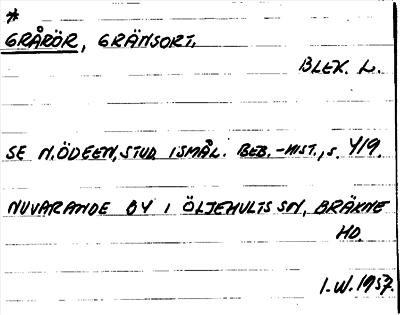 *
GRÅRÖR, GRÄNSORT.
BLEK. L.
SE N. ÖDEEN, STUD. I SMÅL. BEB.-HIST., S. 419.
NUVARANDE BY I ÖLJEHULTS SN, BRÄKNE
HD.
I.W. 1957.